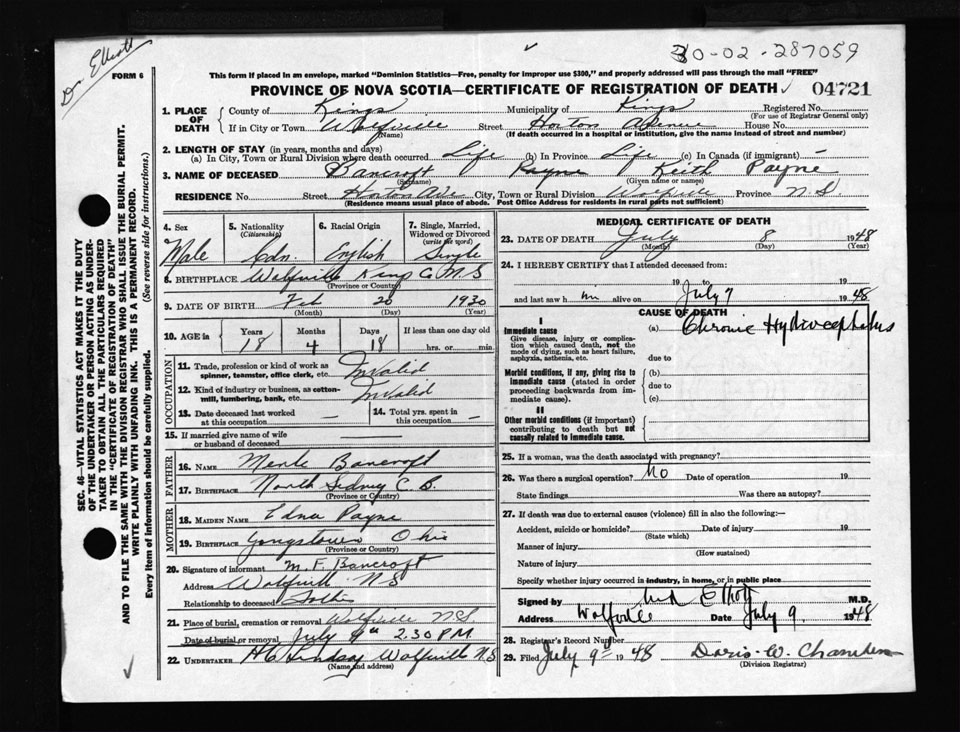 Dr Elliott
30-02-287059
FORM 6
This form if placed in an envelope, marked "Dominion Statistics—Free, penalty for improper use $300," and properly addressed will pass through the mail "FREE"
PROVINCE OF NOVA SCOTIA—CERTIFICATE OF REGISTRATION OF DEATH 04721
1. PLACE OF DEATH County of Kings Municipality of Kings Registered No.
(For use of Registrar General only)
If in City or Town Wolfville Street Horton Avenue House No.
(Name) (If death occurred in a hospital or institution, give the name instead of street and number)
2. LENGTH OF STAY (in years, months and days)
(a) In City, Town or Rural Division where death occurred Life (b) In Province Life (c) In Canada (if immigrant) —
3. NAME OF DECEASED Bancroft Payne Keith Payne
(Surname) (Given name or names)
RESIDENCE No. Street Horton Ave City, Town or Rural Division Wolfville Province N.S.
(Residence means usual place of abode. Post Office Address for residents in rural parts not sufficient)
4. Sex Male
5. Nationality (Citizenship) Cdn.
6. Racial Origin English
7. Single, Married, Widowed or Divorced (write the word) Single
8. BIRTHPLACE Wolfville Kings Co N.S
(Province or Country)
9. DATE OF BIRTH Feb 20 1930
(Month) (Day) (Year)
10. AGE in Years 18 Months 4 Days 18 If less than one day old hrs. or min.
OCCUPATION
11. Trade, profession or kind of work as spinner, teamster, office clerk, etc. Invalid
12. Kind of industry or business, as cotton-mill, lumbering, bank, etc. Invalid
13. Date deceased last worked at this occupation — 14. Total yrs. spent in this occupation —
15. If married give name of wife or husband of deceased
FATHER
16. NAME Merle Bancroft
17. BIRTHPLACE North Sidney C.B.
(Province or Country)
MOTHER
18. MAIDEN NAME Edna Payne
19. BIRTHPLACE Yongstown Ohio
(Province or Country)
20. Signature of informant M. F. Bancroft
Address Wolfville N S
Relationship to deceased Father
21. Place of burial, cremation or removal Wolfville NS
Date of burial or removal July 9th 2.30 PM
22. UNDERTAKER H C Lindsay Wolfville N S
(Name and address)
MEDICAL CERTIFICATE OF DEATH
23. DATE OF DEATH July 8 1948
(Month) (Day) (Year)
24. I HEREBY CERTIFY that I attended deceased from:
19 to 19
and last saw h im alive on July 7 1948
CAUSE OF DEATH
I
Immediate cause (a) Chronic Hydrocephalus
Give disease, injury or complication which caused death, not the mode of dying, such as heart failure, asphyxia, asthenia, etc.
due to
Morbid conditions, if any, giving rise to immediate cause (stated in order proceeding backwards from immediate cause).
(b)
due to
(c)
II
Other morbid conditions (if important) contributing to death but not causally related to immediate cause.
25. If a woman, was the death associated with pregnancy?
26. Was there a surgical operation? No Date of operation 19
State findings Was there an autopsy?
27. If death was due to external causes (violence) fill in also the following:—
Accident, suicide or homicide? Date of injury 19
(State which)
Manner of injury
(How sustained)
Nature of injury
Specify whether injury occurred in industry, in home, or in public place
Signed by Elliott M.D.
Address Wolfville Date July 9. 1948
28. Registrar's Record Number
29. Filed July 9th 1948 Doris W. Chambers
(Division Registrar)
SEC. 46—VITAL STATISTICS ACT MAKES IT THE DUTY
OF THE UNDERTAKER OR PERSON ACTING AS UNDER-
TAKER TO OBTAIN ALL THE PARTICULARS REQUIRED
IN THE "CERTIFICATE OF REGISTRATION OF DEATH"
AND TO FILE THE SAME WITH THE DIVISION REGISTRAR WHO SHALL ISSUE THE BURIAL PERMIT.
WRITE PLAINLY WITH UNFADING INK. THIS IS A PERMANENT RECORD.
Every item of information should be carefully supplied. (See reverse side for instructions.)